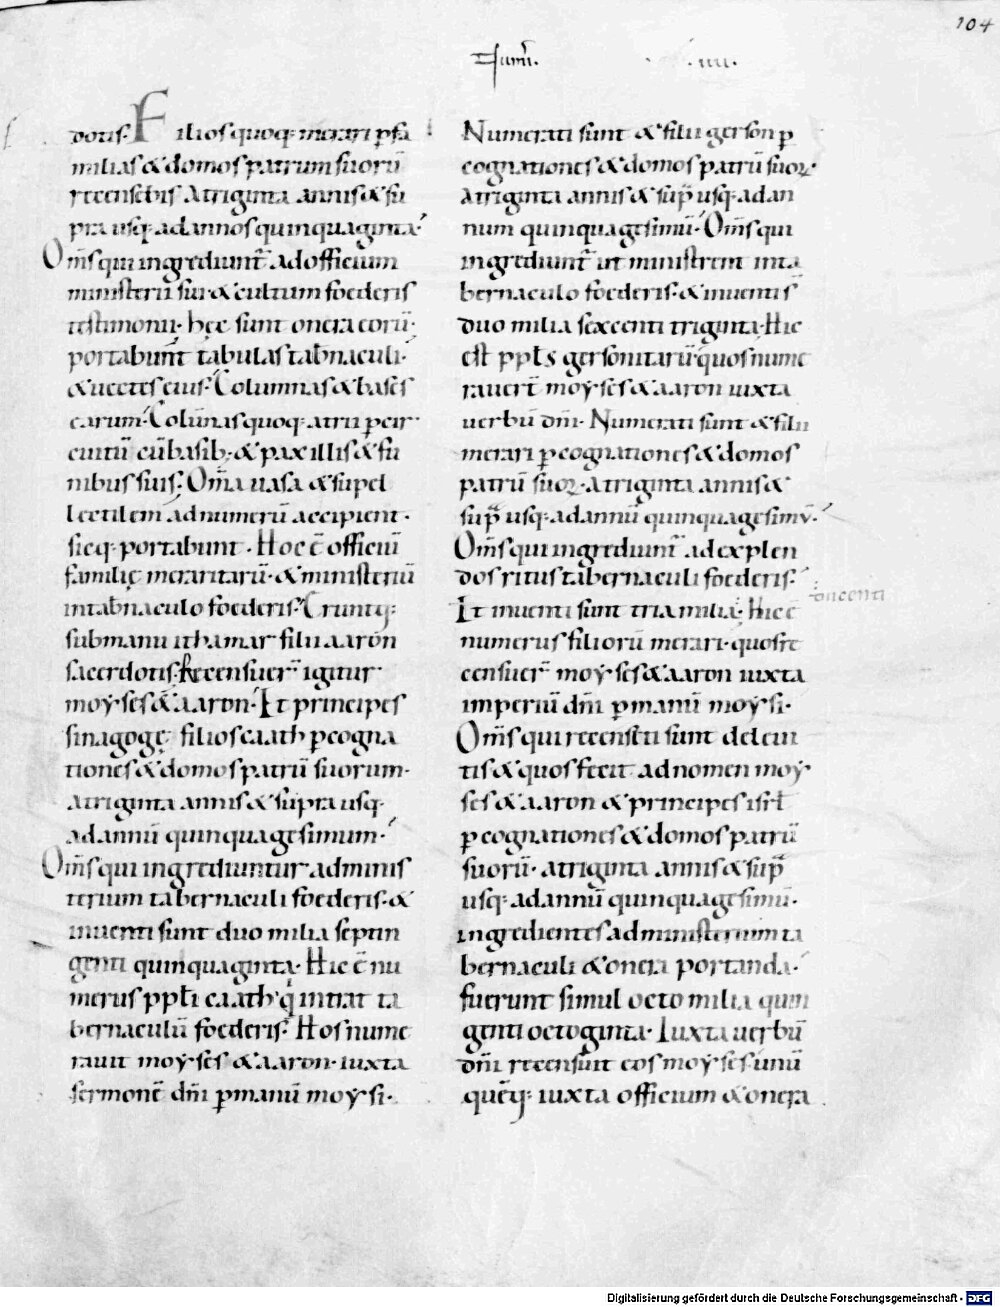 104
Numī. .IIII.
dotis. Filios quoq; merari p fa
milias & domos patrum suorū
recensebis a triginta annis & su
pra usq; ad annos quinquaginta.
Om̄s qui ingrediunt̄ ad officium
ministerii sui & cultum foederis
testimonii. hęc sunt onera eorū.
portabunt tabulas tab̄naculi.
& uectes eius. Columnas & bases
earum. Colūnas quoq; atrii p cir
cuitū cū basib; & paxillis & fu
nibus suis. Om̄a uasa & supel
lectilem ad numerū accipient.
sicq; portabunt. Hoc ē officiū
familię meraritarū. & ministeriū
in tab̄naculo foederis. Eruntq;
sub manu ithamar filii aaron
sacerdotis. Recensuer̄ igitur
moyses & aaron. Et principes
sinagogę filios caath p cogna
tiones & domos patrū suorum.
a triginta annis & supra usq;
ad annū quinquagesimum.
Om̄s qui ingrediuntur ad minis
terium tabernaculi foederis. &
inuenti sunt duo milia septin
genti quinquaginta. Hic ē nu
merus pp̄li caath qi intrat ta
bernaculū foederis. Hos nume
rauit moyses & aaron. iuxta
sermonē dn̄i p manū moysi.
Numerati sunt & filii gerson p
cognationes & domos patrū suoꝝ.
a triginta annis & sup̄ usq; ad an
num quinquagesimū. Om̄s qui
ingrediunt̄ ut ministrent in ta
bernaculo foederis. & inuenti s̄
duo milia sexcenti triginta. Hic
est pp̄ls gersonitarū quos nume
rauer̄t moyses & aaron iuxta
uerbū dn̄i. Numerati sunt & filii
merari p cognationes & domos
patrū suoꝝ. a triginta annis &
sup̄ usq; ad annū quinquagesimū.
Om̄s qui ingrediunt̄ ad explen
dos ritus tabernaculi foederis.
Et inuenti sunt tria milia. Hic ē
ducenti
numerus filiorū merari. quos re
censuer̄ moyses & aaron iuxta
imperiū dn̄i p manū moysi.
Om̄s qui recensiti sunt de leui
tis & quos fecit ad nomen moy
ses & aaron & principes isrl̄
p cognationes & domos patrū
suorū. a triginta annis & sup̄
usq; ad annū quinquagesimū.
ingredientes ad ministerium ta
bernaculi & onera portanda.
fuerunt simul octo milia quin
genti octoginta. Iuxta uerbū
dn̄i recensuit eos moyses. unū
quēq; iuxta officium & onera
Digitalisierung gefördert durch die Deutsche Forschungsgemeinschaft - DFG